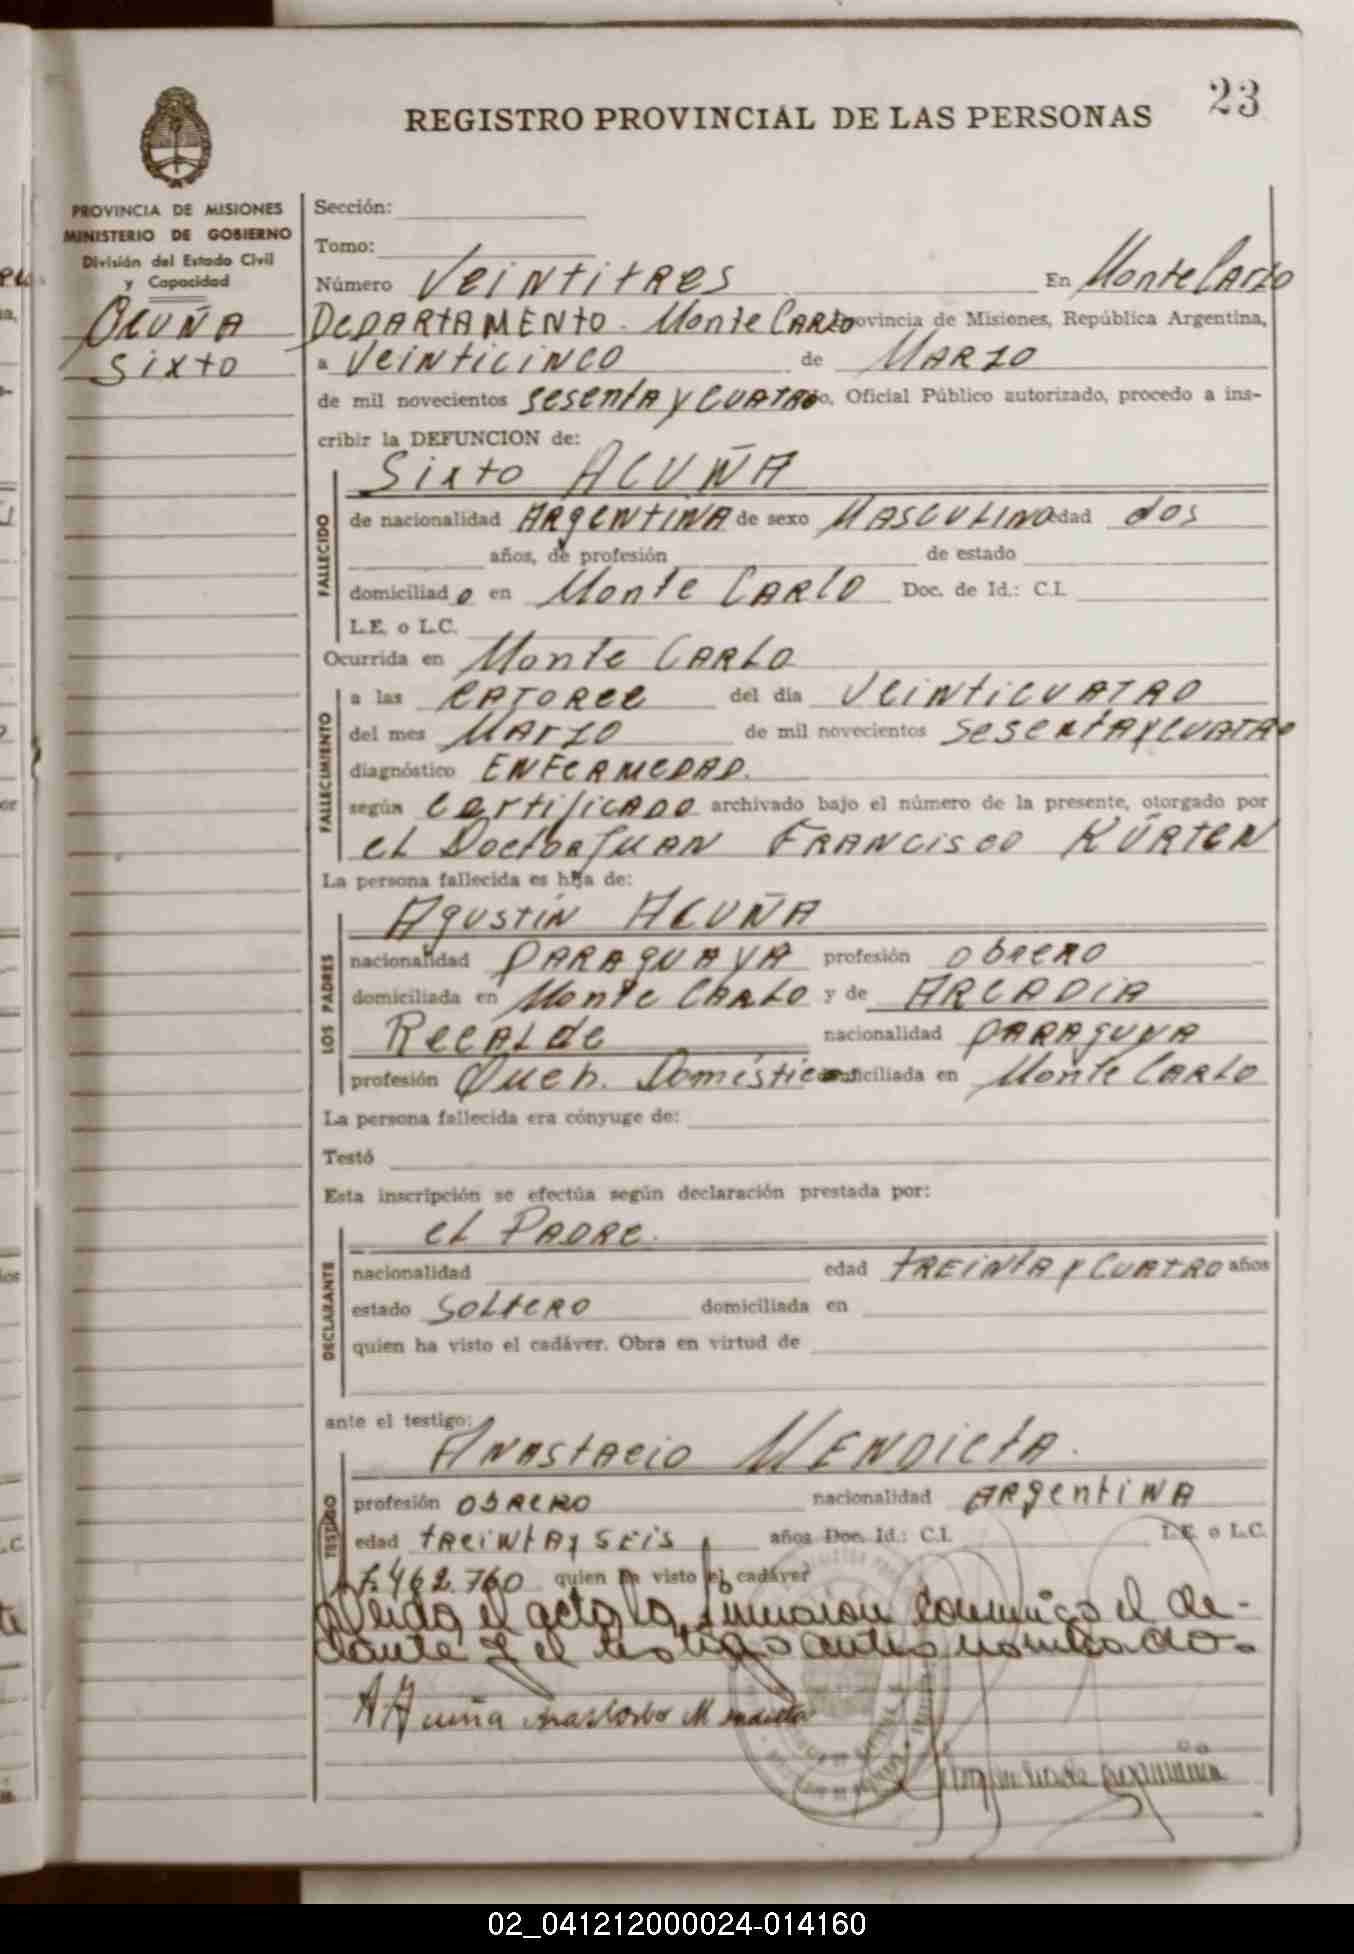 23
REGISTRO PROVINCIAL DE LAS PERSONAS
PROVINCIA DE MISIONES
MINISTERIO DE GOBIERNO
División del Estado Civil
y Capacidad
Ocuña
Sixto
Sección:
Tomo:
Número Veintitres En Monte Carlo
Departamento. Monte Carlo Provincia de Misiones, República Argentina,
a Veinticinco de Marzo
de mil novecientos sesenta y cuatro, Oficial Público autorizado, procedo a ins-
cribir la DEFUNCION de:
Sixto Acuña
FALLECIDO
de nacionalidad Argentina de sexo Masculino edad dos
años, de profesión de estado
domiciliado en Monte Carlo Doc. de Id.: C.I.
L.E. o L.C.
Ocurrida en Monte Carlo
FALLECIMIENTO
a las catorce del día veinticuatro
del mes Marzo de mil novecientos sesenta y cuatro
diagnóstico Enfermedad.
según certificado archivado bajo el número de la presente, otorgado por
el Doctor Juan Francisco Kürten
La persona fallecida es hija de:
LOS PADRES
Agustín Acuña
nacionalidad Paraguaya profesión obrero
domiciliada en Monte Carlo y de Arcadia
Recalde nacionalidad Paraguya
profesión Queh. Domésticos domiciliada en Monte Carlo
La persona fallecida era cónyuge de:
Testó
Esta inscripción se efectúa según declaración prestada por:
DECLARANTE
el Padre.
nacionalidad edad treinta y cuatro años
estado soltero domiciliada en
quien ha visto el cadáver. Obra en virtud de
ante el testigo:
TESTIGO
Anastacio Mendieta.
profesión obrero nacionalidad Argentina
edad treinta y seis años Doc. Id.: C.I. L.E. o L.C.
7.462.760 quien ha visto el cadáver
Leida el acta la firmaron conmigo el de-
clarante y el testigo antes nombrado.
A Acuña Anastacio Mendieta
02_041212000024-014160